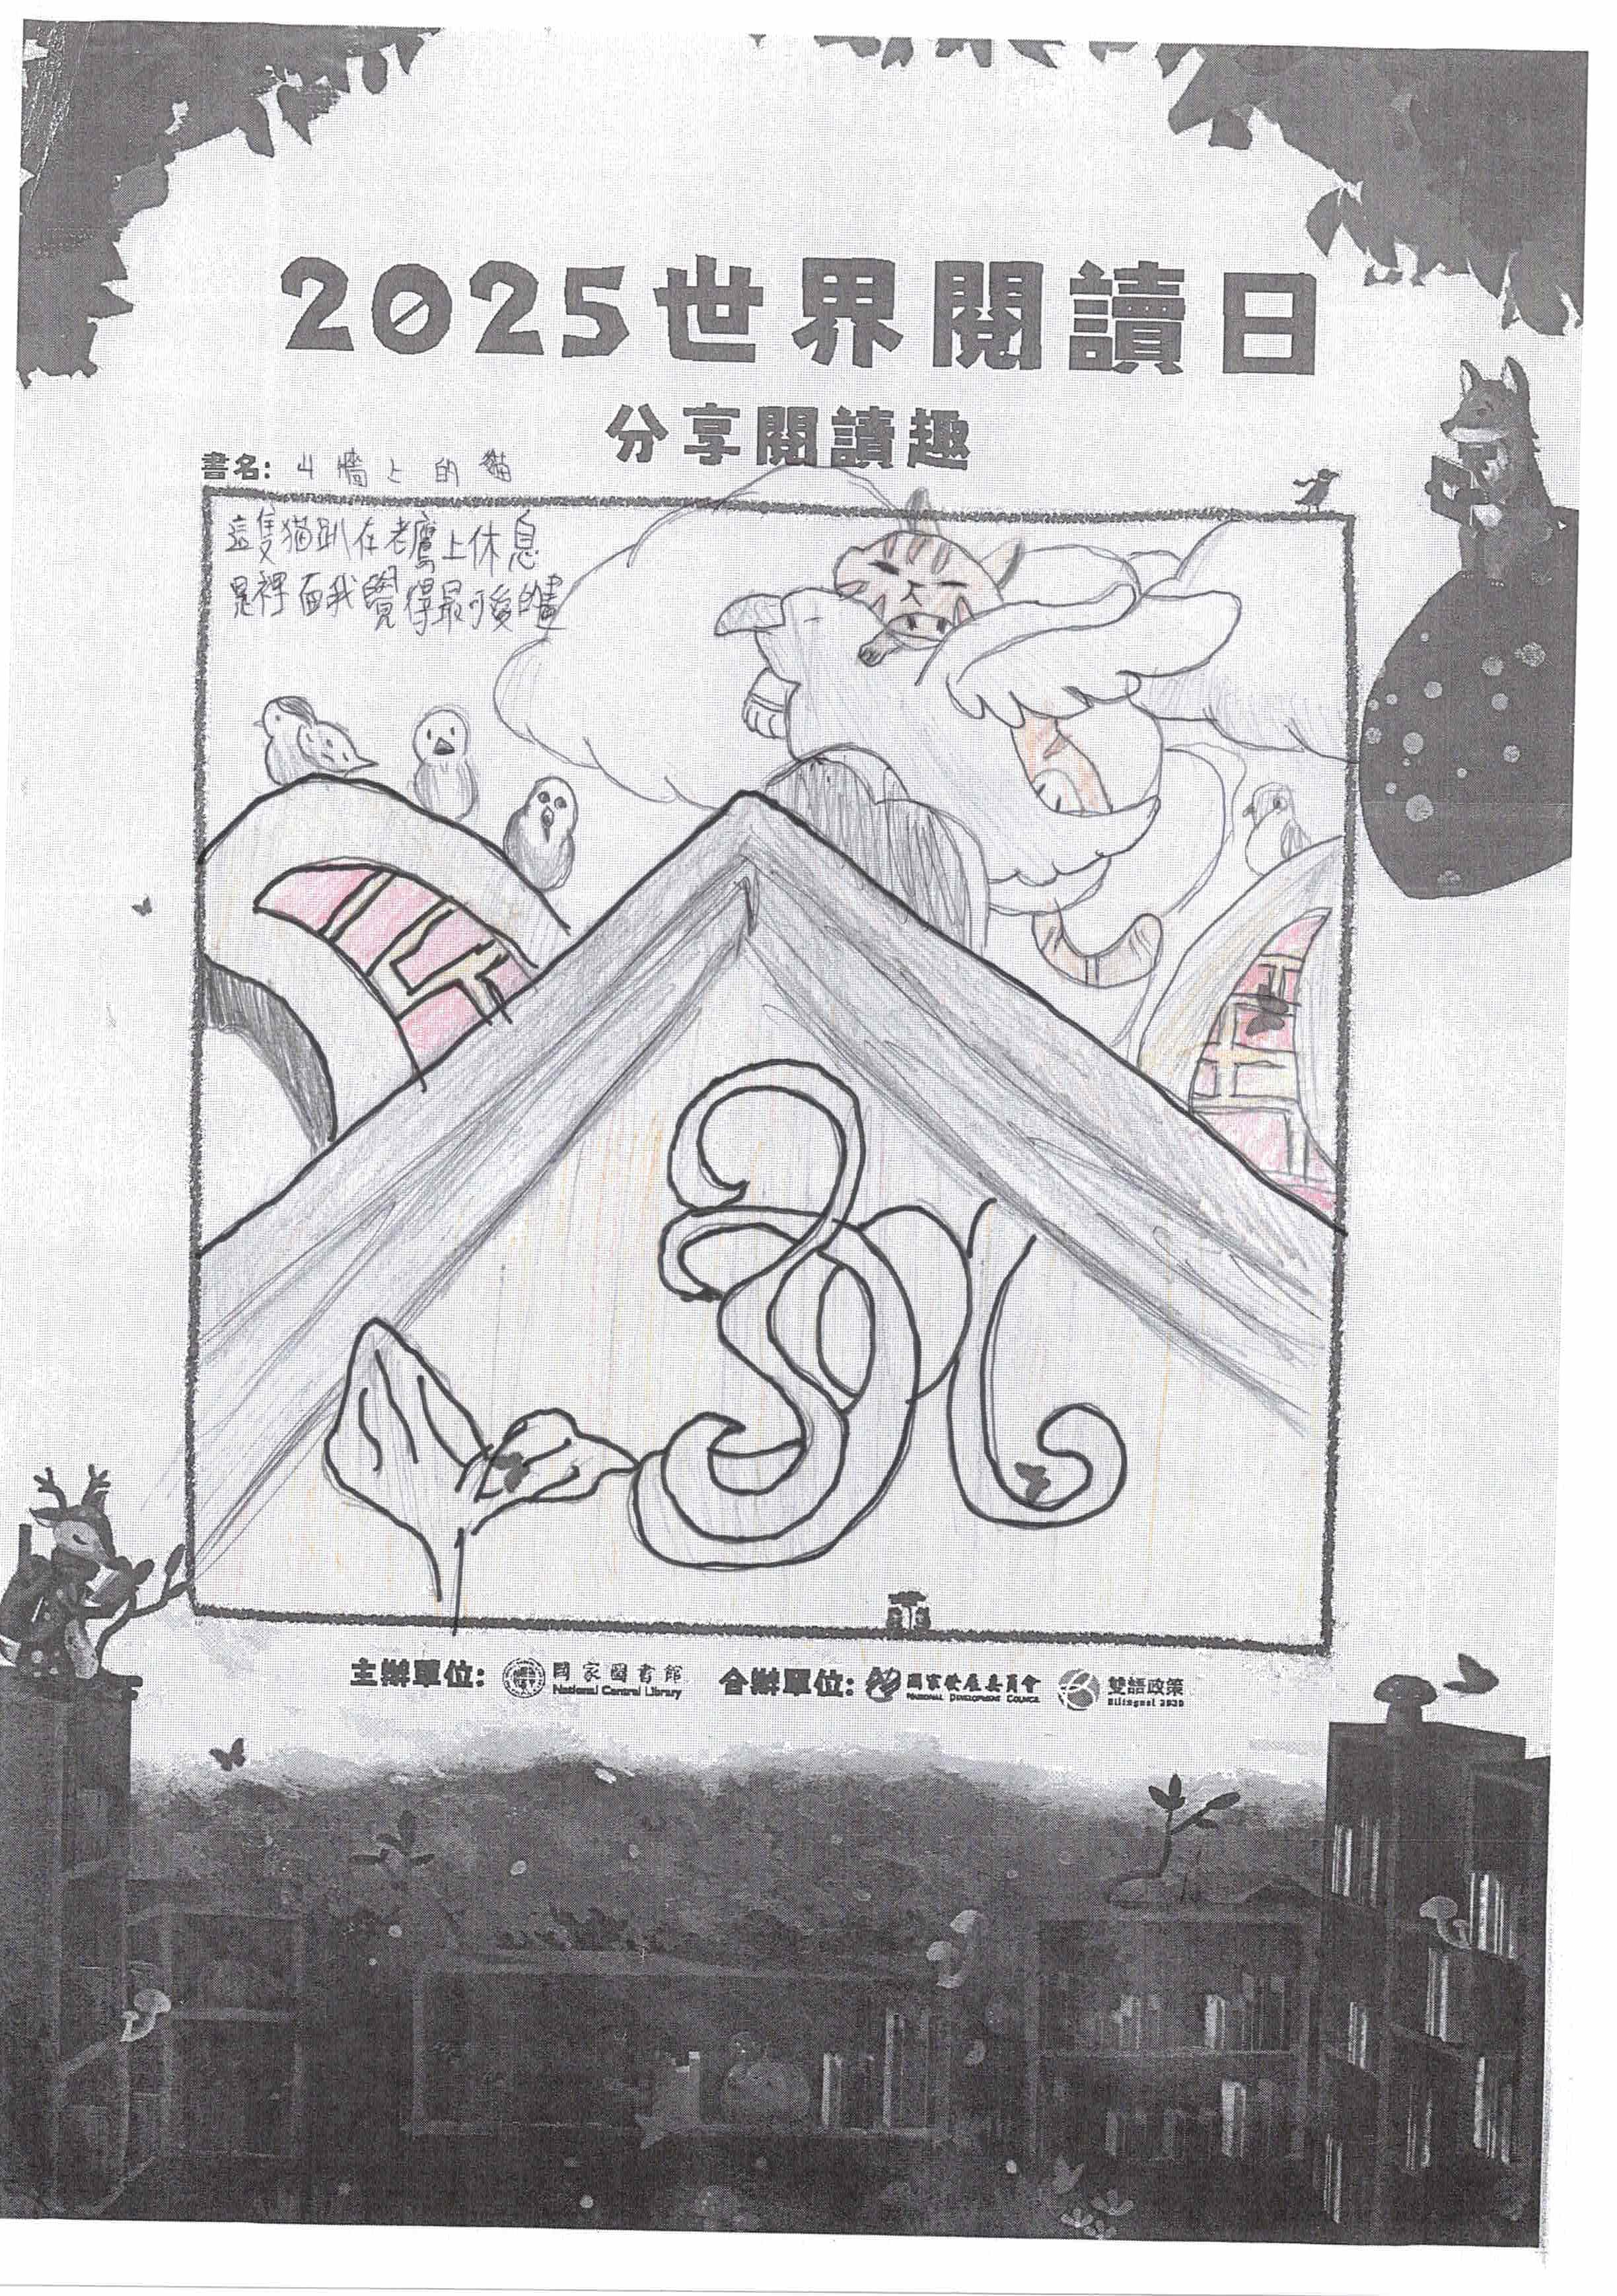 2025世界閱讀日
分享閱讀趣
書名: 牆上的貓
這隻猫趴在老鷹上休息
是裡面我覺得最可愛的畫
主辦單位: 國家圖書館 National Central Library 合辦單位: 國家發展委員會 National Development Council 雙語政策 Bilingual 2030